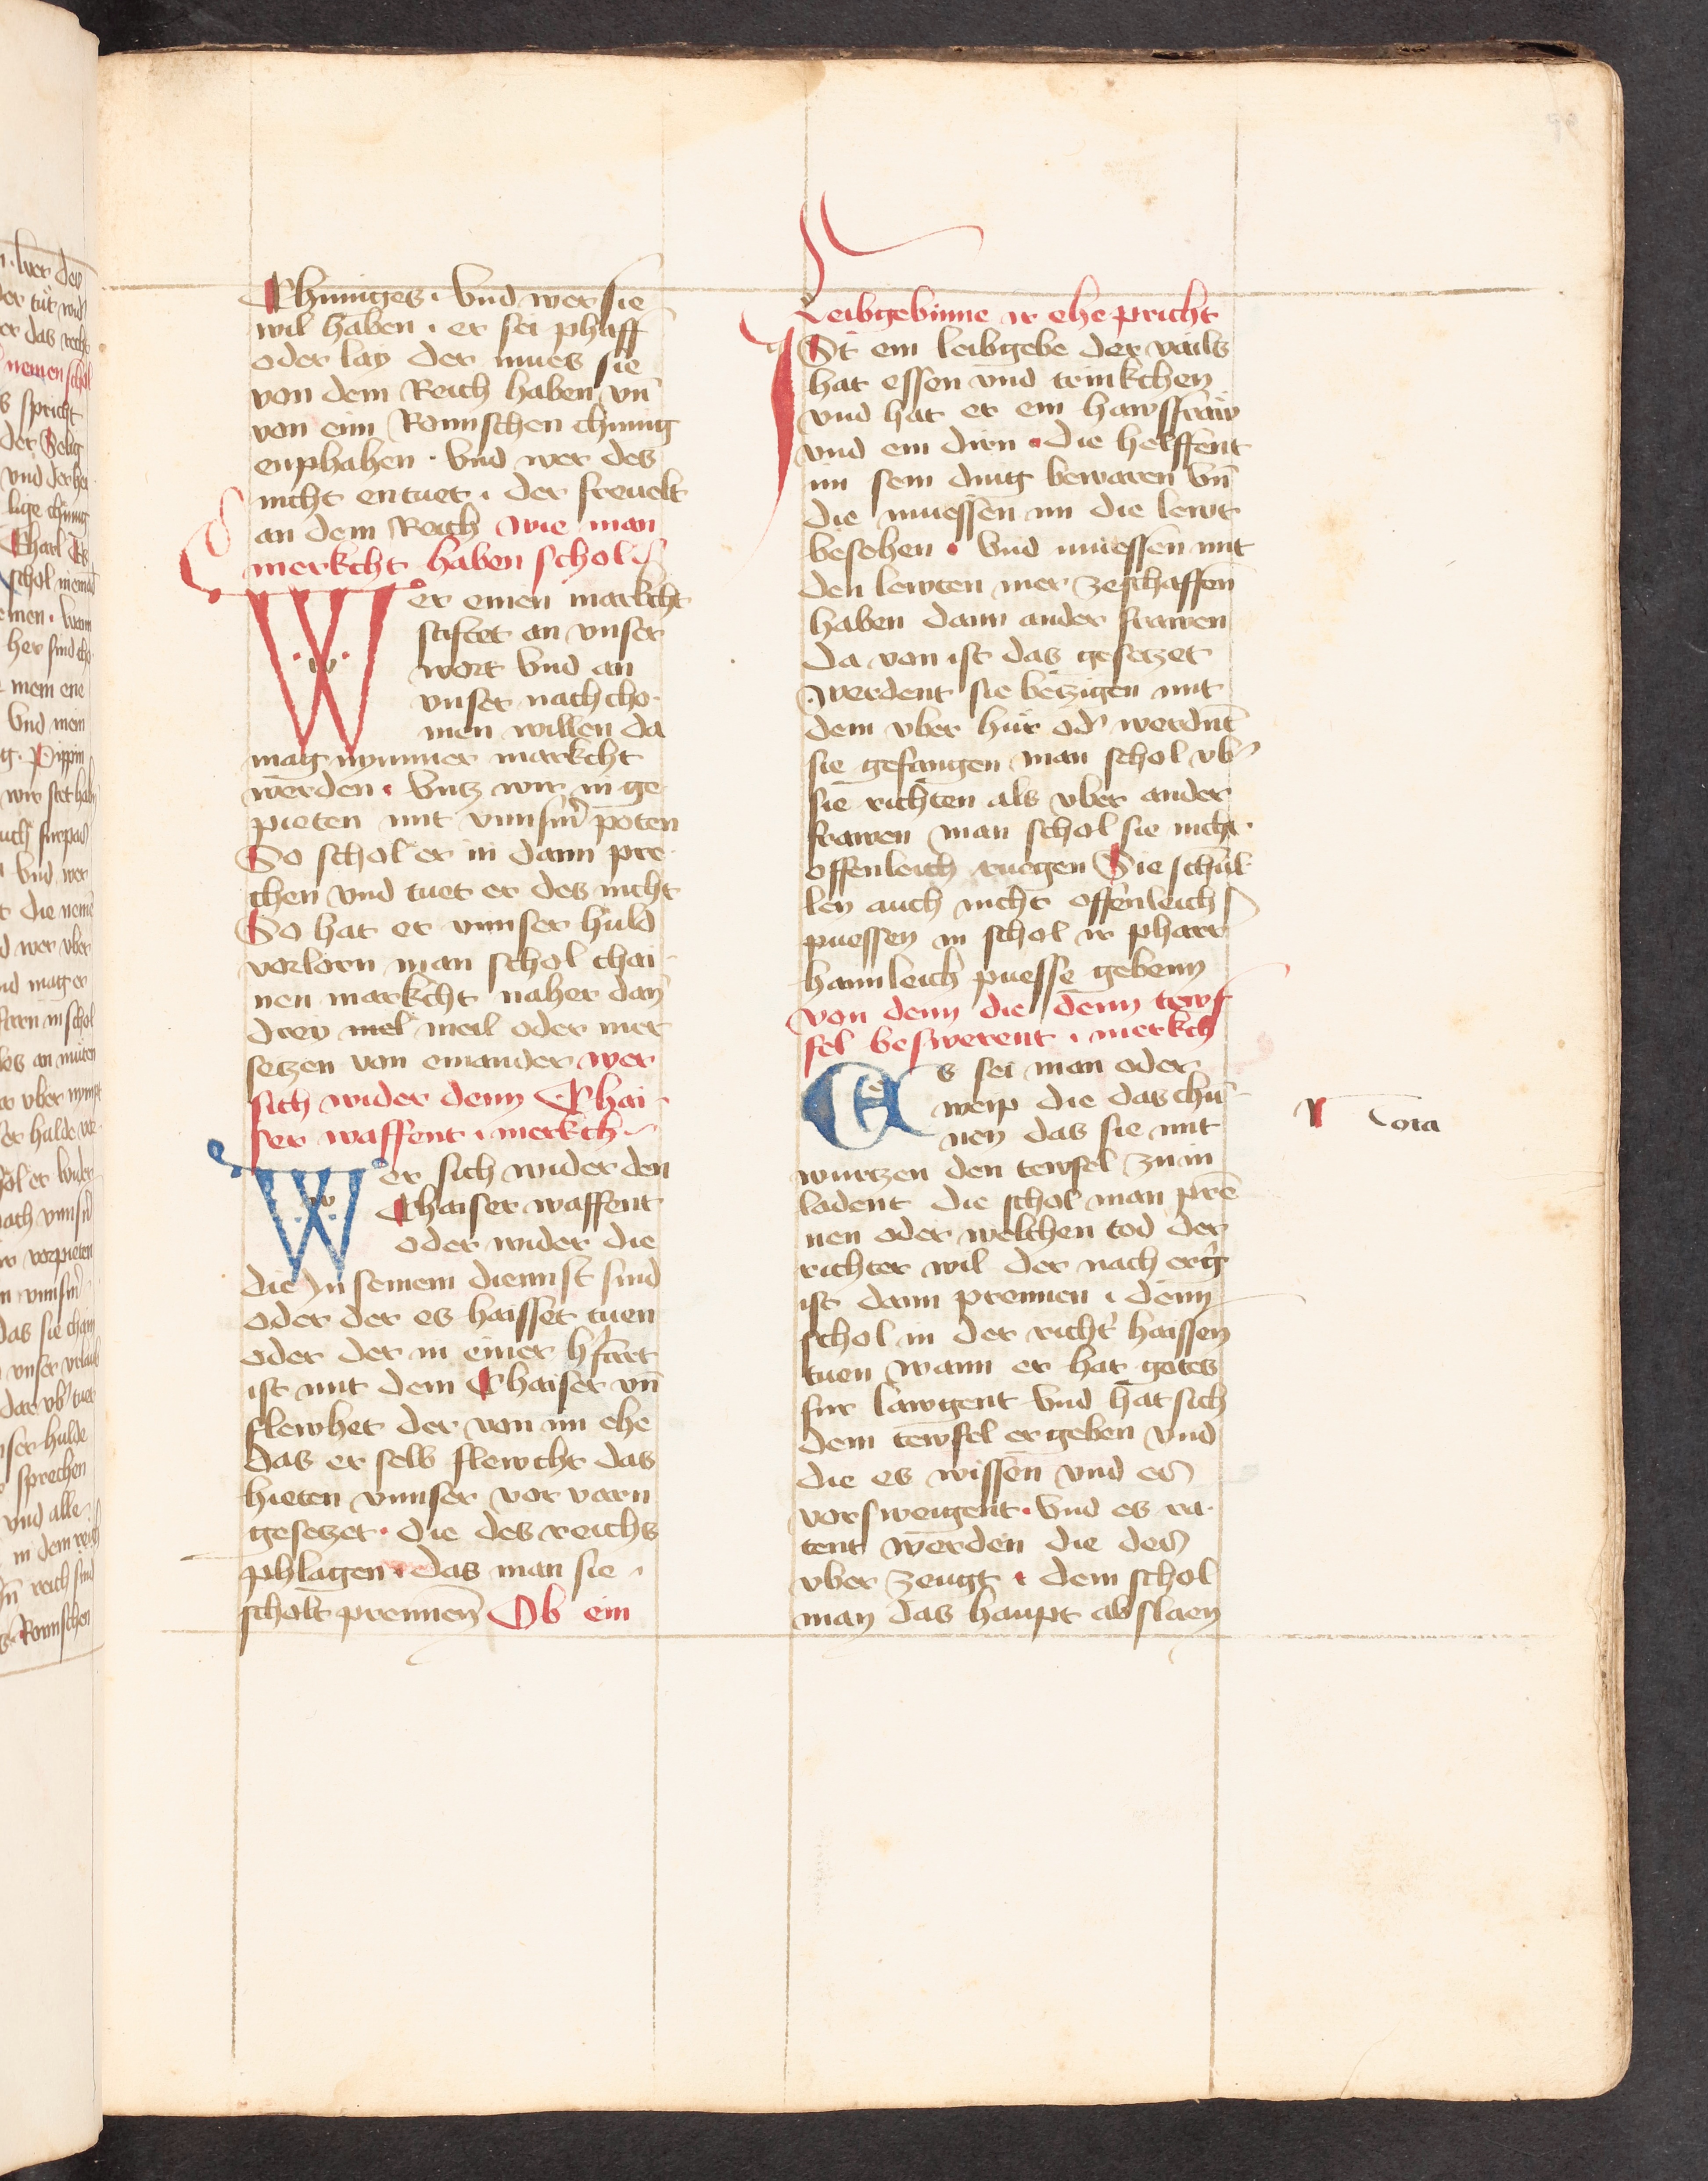 Chuniges · Vnd wer sie
wil haben · er sei phaff
oder lay der mues sie
von dem Reich haben vn̄
von eim Romischen chunig
enphahen · Vnd wer des
nicht entuet · der freuelt
an dem Reich wie man
merkcht haben schol
Wer einen markcht
stiftet an vnser
wort vnd an
vnser nach cho·
men willen da
mag nymmer markcht
werden · vntz wir in ge
pieten mit vnnsm̄ poten
So schol er in dann pre·
chen vnd tuet er des nicht
So hat er vnnser huld
verlorn man schol chai·
nen markcht naher dan̄
drey mel meil oder mer
setzen von einander wer
sich wider denn Chai·
ser waffent · merkch
Wer sich wider den
Chaiser waffent
oder wider die
die in seinem diennst sind
oder der es haisset tuen
oder der in einer hfart
ist mit dem Chaiser vn̄
flewhet der von im ehe
das er selb flewcht das
hieten vnnser vor varn
gesetzet · die des reichs
phlagen · das man sie ·
scholt prennen Ob ein
Leibgebinne ir ehe pricht
ISt ein leibgebe der vails
hat essen vnd trinkchen
vnd hat er ein hawsfraw
vnd ein dirn · die helffent
im sein ding bewaren vn̄
die muessen im die lewt
besehen · Vnd muessen mit
den lewten mer zeschaffen
haben dann ander frawen
da von ist das gesetzet
werdent sie betzigen mit
dem vber hur od' werdnt̄
sie gefangen man schol vb'
sie richten als vber ander
frawen man schol sie nicht·
offenleich ruegen Sie schul·
len auch nicht offenleich
puessen in schol ir pharr
hannleich puesse gebenn
von denn die denn tewf
fel beswerent · merkch
Es sei man oder
weip die das chu·
nen das sie mit
wurtzen den tewfel zu in
ladent die schol man pre
nen oder welchen tod der
richter wil der nach erg'
ist dann prennen · denn
schol in der richt' haissen
tuen wann er hat gotes
fur lawgent Vnd hat sich
dem tewfel ergeben vnd
die es wissen vnd es
versweigent · Vnd es ra·
tent werden die des
vber zeugt · dem schol
man das haupt ab slaen